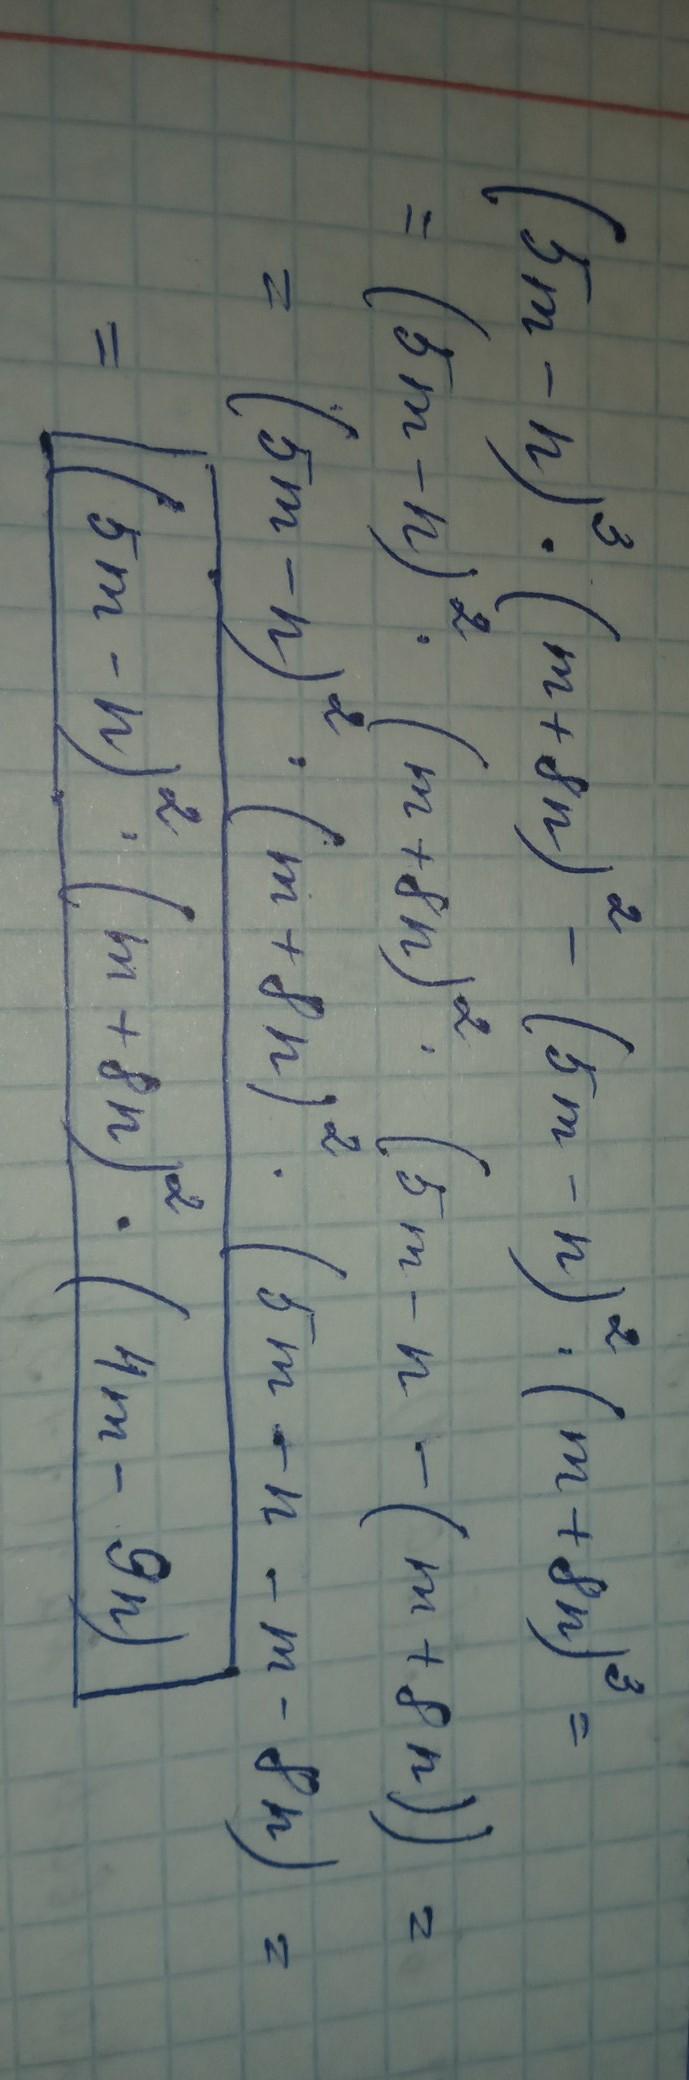 (5m - n)³ · (m + 8n)² - (5m - n)² · (m + 8n)³ =
= (5m - n)² · (m + 8n)² · (5m - n - (m + 8n)) =
= (5m - n)² · (m + 8n)² · (5m - n - m - 8n) =
= (5m - n)² · (m + 8n)² · (4m - 9n)